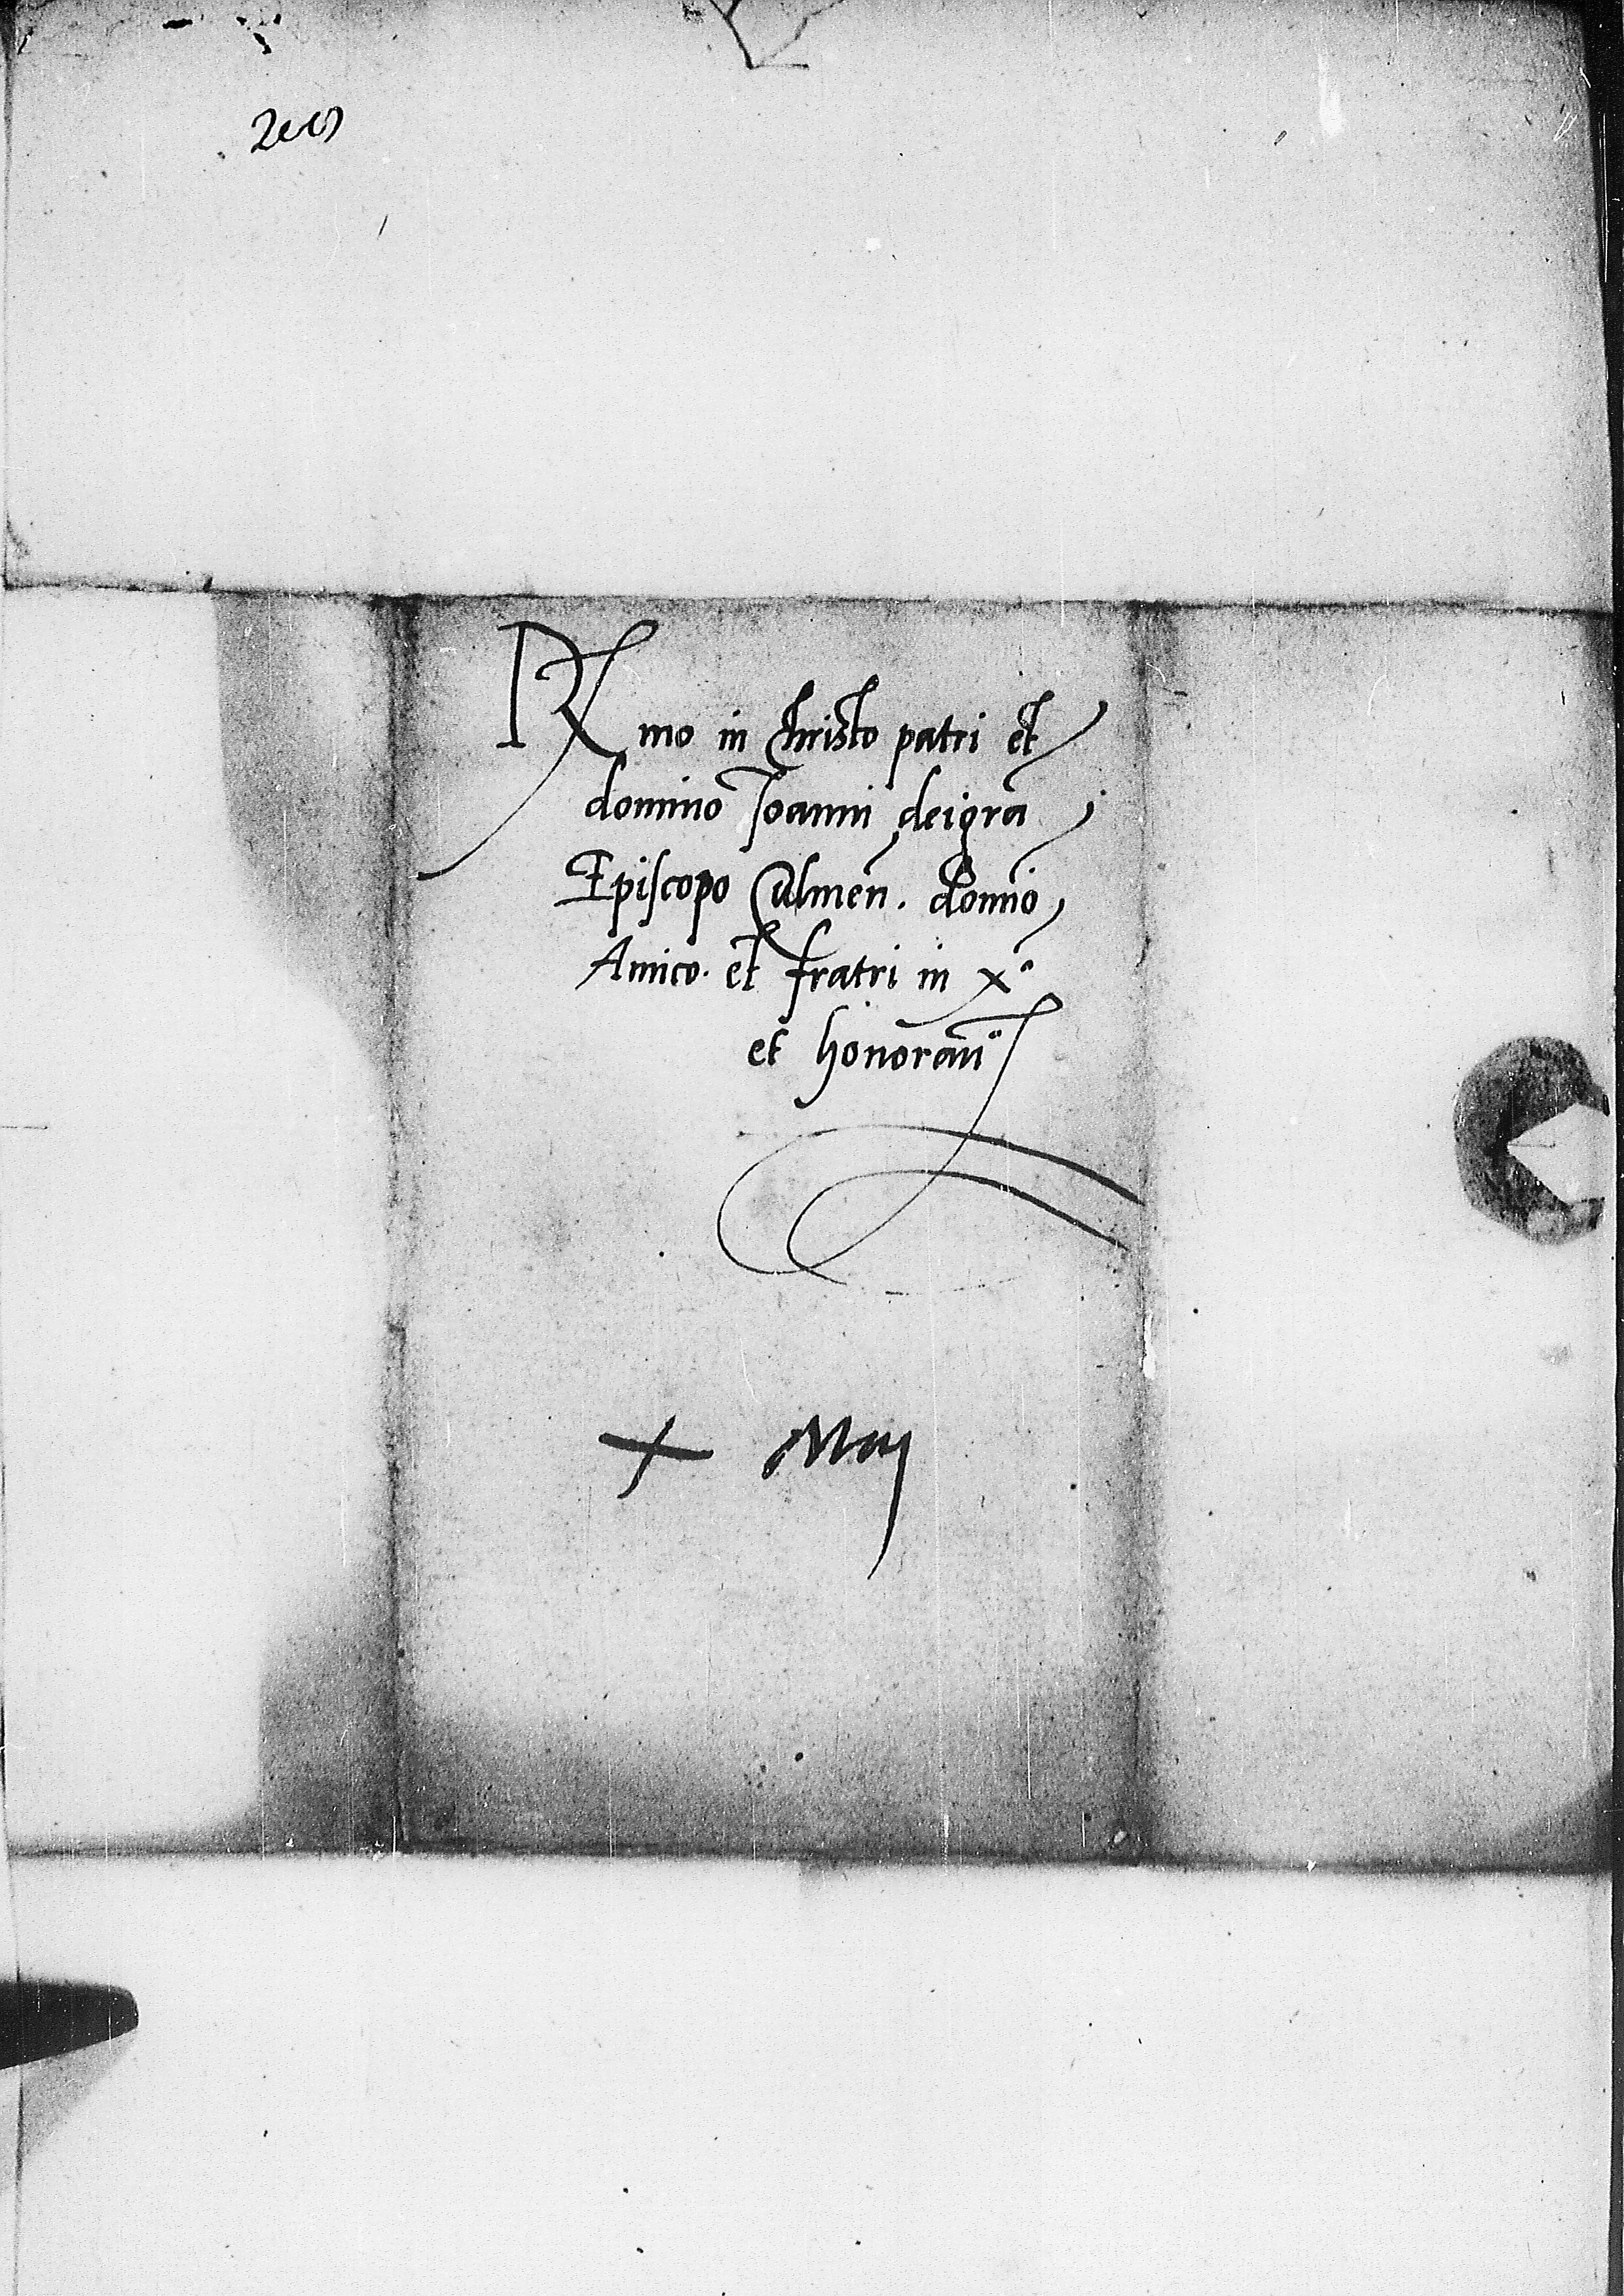 Rmo in Christo patri et
domino Joanni dei gra
Episcopo Culmen. domio
Amico. et fratri in x°
et honoran°
+ Maij